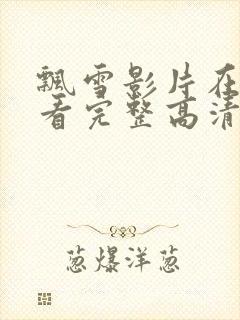 飘雪影片在
看完整高清
葱爆洋葱